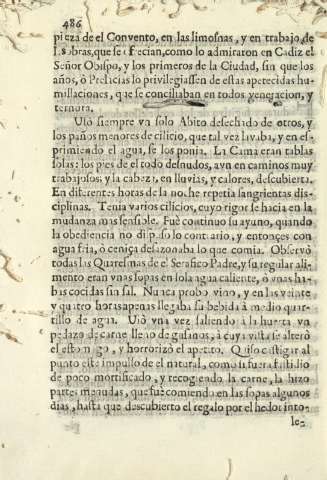 486
pieza de el Convento, en las limosnas, y en trabajo de
las obras, que se ofrecian, como lo admiraron en Cadiz el
Señor Obispo, y los primeros de la Ciudad, sin que los
años, ò Prelacias lo privilegiassen de estas apetecidas hu-
millaciones, que se conciliaban en todos veneracion, y
ternura.
Usò siempre un solo Abito desechado de otros, y
los paños menores de cilicio, que tal vez lavaba, y en ex-
primiendo el agua, se los ponia. La Cama eran tablas
solas: los pies de el todo desnudos, aun en caminos muy
trabajosos; y la cabeza, en lluvias, y calores, descubierta.
En diferentes horas de la noche repetia sangrientas dis-
ciplinas. Tenia varios cilicios, cuyo rigor le hacia en la
mudanza mas sensible. Fuè continuo su ayuno, quando
la obediencia no dispuso lo contrario, y entonçes con
agua fria, ò ceniça desazonaba lo que comia. Observò
todas las Quaresmas de el Serafico Padre, y su regular ali-
mento eran unas sopas en sola agua caliente, ò unas ha-
bas cocidas sin sal. Nunca probo vino, y en las veinte
y quatro horas apenas llegaba su bebida à medio quar-
tillo de agua. Viò una vez saliendo à la huerta un
pedazo de carne lleno de gusanos, à cuya vista se alterò
el estomago, y horrorizò el apetito. Quiso castigar al
punto este impulso de el natural, como si fuera fastidio
de poco mortificado, y recogiendo la carne, la hizo
partes menudas, que fuè comiendo en las sopas algunos
dias, hasta que descubierto el regalo por el hedor into-
le-